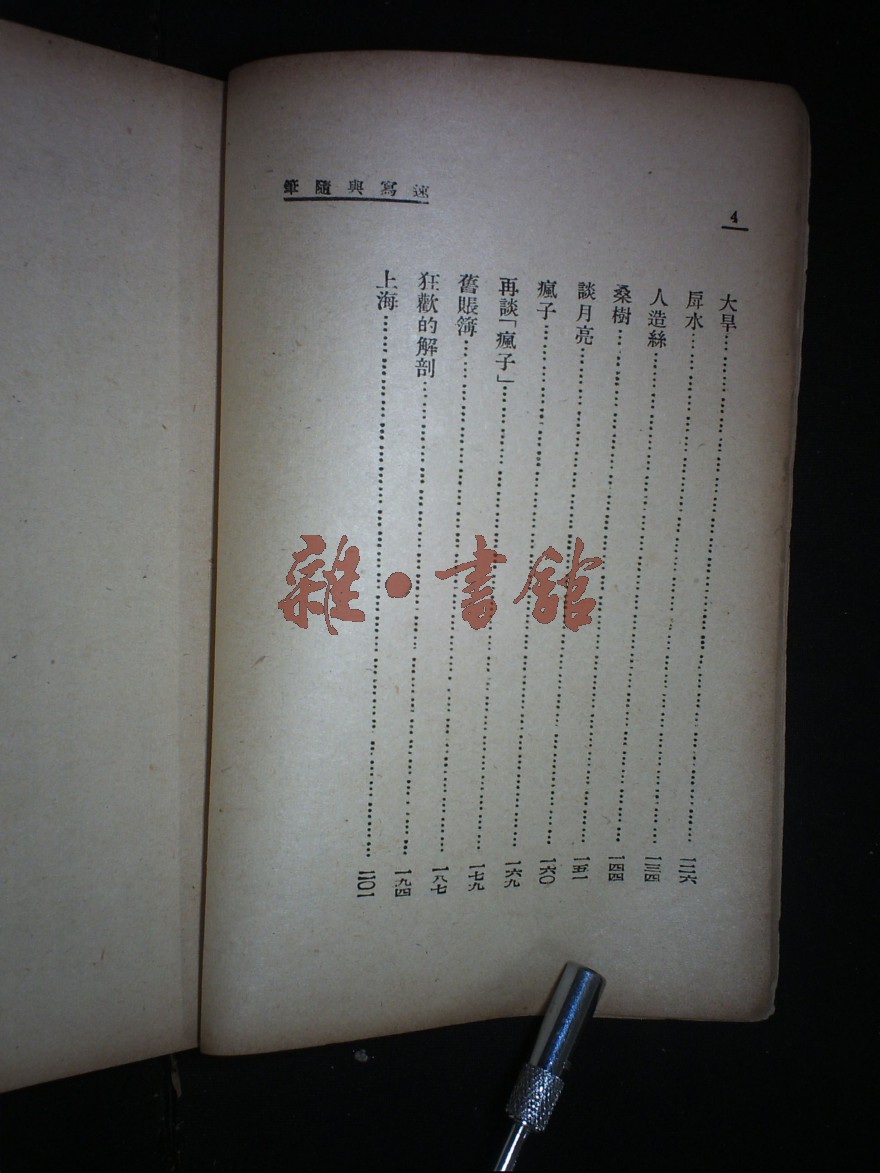 4
速寫與隨筆
大旱……一二六
戽水……一三四
人造絲……一四四
桑樹……一五一
談月亮……一六〇
瘋子……一六九
再談「瘋子」……一七九
舊賬簿……一八七
狂歡的解剖……一九四
上海……二〇一
雜·書館